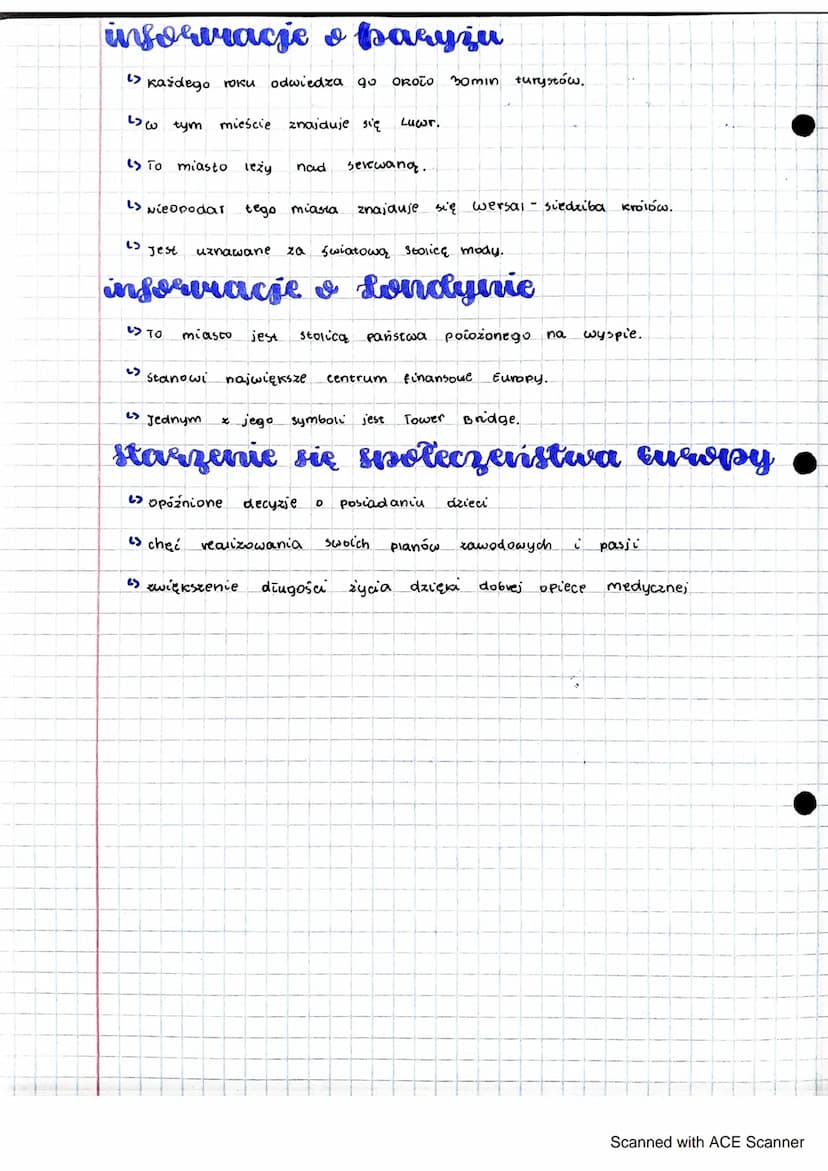 informacje o paryżu
↳ każdego roku odwiedza go około 30mln turystów.
↳ w tym mieście znajduje się Luwr.
↳ To miasto leży nad sekwaną.
↳ Nieopodal tego miasta znajduje się wersal - siedziba królów.
↳ jest uznawane za światową stolicę mody.
informacje o Londynie
↳ To miasto jest stolicą państwa położonego na wyspie.
↳ stanowi największe centrum finansowe Europy.
↳ jednym z jego symboli jest Tower Bridge.
starzenie się społeczeństwa Europy
↳ opóźnione decyzje o posiadaniu dzieci
↳ chęć realizowania swoich planów zawodowych i pasji
↳ zwiększenie długości życia dzięki dobrej opiece medycznej
Scanned with ACE Scanner